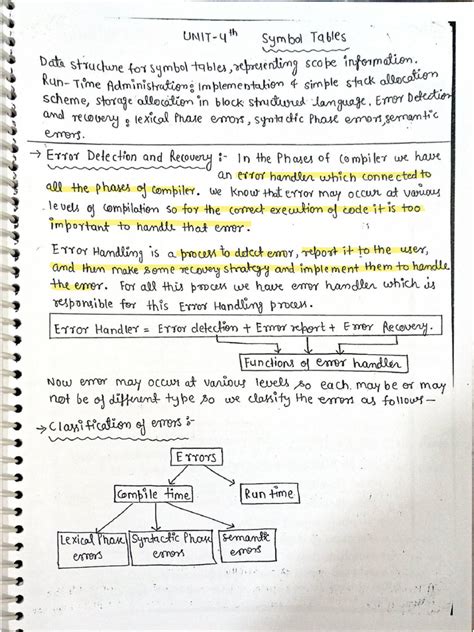 UNIT-4th Symbol Tables
Data structure for symbol tables, representing scope information.
Run-Time Administration: Implementation of simple stack allocation
scheme, storage allocation in block structured language. Error Detection
and recovery: lexical Phase errors, syntactic Phase errors, semantic
errors.
→ Error Detection and Recovery :- In the Phases of Compiler we have
an error handler which connected to
all the phases of compiler. we know that error may occur at various
levels of compilation so for the correct execution of code it is too
important to handle that error.
Error Handling is a process to detect error, report it to the user,
and then make some recovery strategy and implement them to handle
the error. For all this process we have error handler which is
responsible for this Error Handling process.
Error Handler = Error detection + Error report + Error Recovery.
Functions of error handler
Now error may occur at various levels so each may be or may
not be of different type so we classify the errors as follows –
→ Classification of errors :-
Errors
Compile time Run time
Lexical Phase Syntactic Phase Semantic
errors errors errors